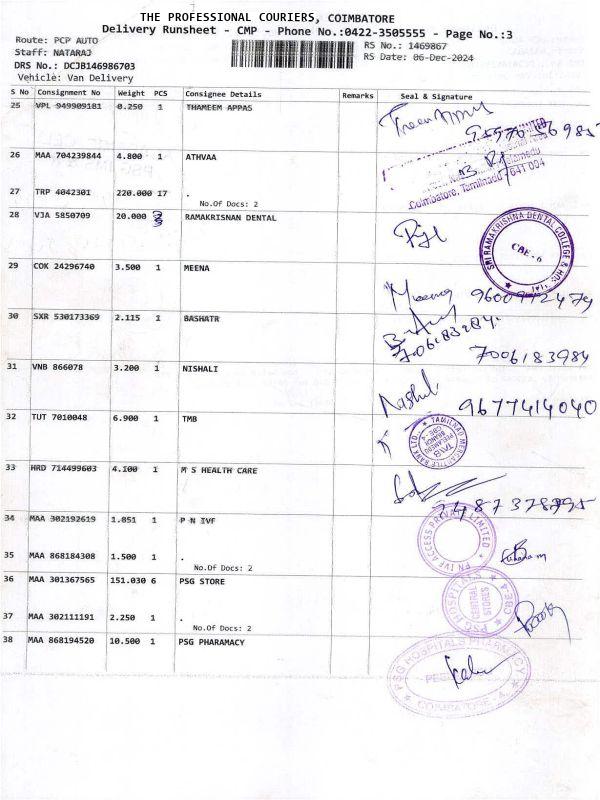 THE PROFESSIONAL COURIERS, COIMBATORE
Delivery Runsheet - CMP - Phone No.:0422-3505555 - Page No.:3
Route: PCP AUTO
Staff: NATARAJ
DRS No.: DCJB146986703
Vehicle: Van Delivery
RS No.: 1469867
RS Date: 06-Dec-2024
S No Consignment No Weight PCS Consignee Details Remarks Seal & Signature
25 VPL 949909181 0.250 1 THAMEEM APPAS
26 MAA 704239844 4.800 1 ATHVAA
Coimbatore, Tamilnadu 641 004
27 TRP 4042301 220.000 17 .
No.Of Docs: 2
28 VJA 5850709 20.000 3 RAMAKRISNAN DENTAL
SRI RAMAKRISHNA DENTAL COLLEGE & HOS
CBE-6
29 COK 24296740 3.500 1 MEENA
Meena
30 SXR 530173369 2.115 1 BASHATR
7006183984
31 VNB 866078 3.200 1 NISHALI
9677414040
32 TUT 7010048 6.900 1 TMB
TAMILNAD MERCANTILE BANK LTD.
TMB
PEELAMEDU
BRANCH
CBE-4
33 HRD 714499603 4.100 1 M S HEALTH CARE
34 MAA 302192619 1.051 1 P N IVF
PN IVF ACCESS PRIVATE LIMITED
35 MAA 868184308 1.500 1 .
No.Of Docs: 2
36 MAA 301367565 151.030 6 PSG STORE
PSG HOSPITALS
CENTRAL
STORES
CBE-4
37 MAA 302111191 2.250 1 .
No.Of Docs: 2
38 MAA 868194520 10.500 1 PSG PHARAMACY
PSG HOSPITALS PHARMACY
COIMBATORE - 4